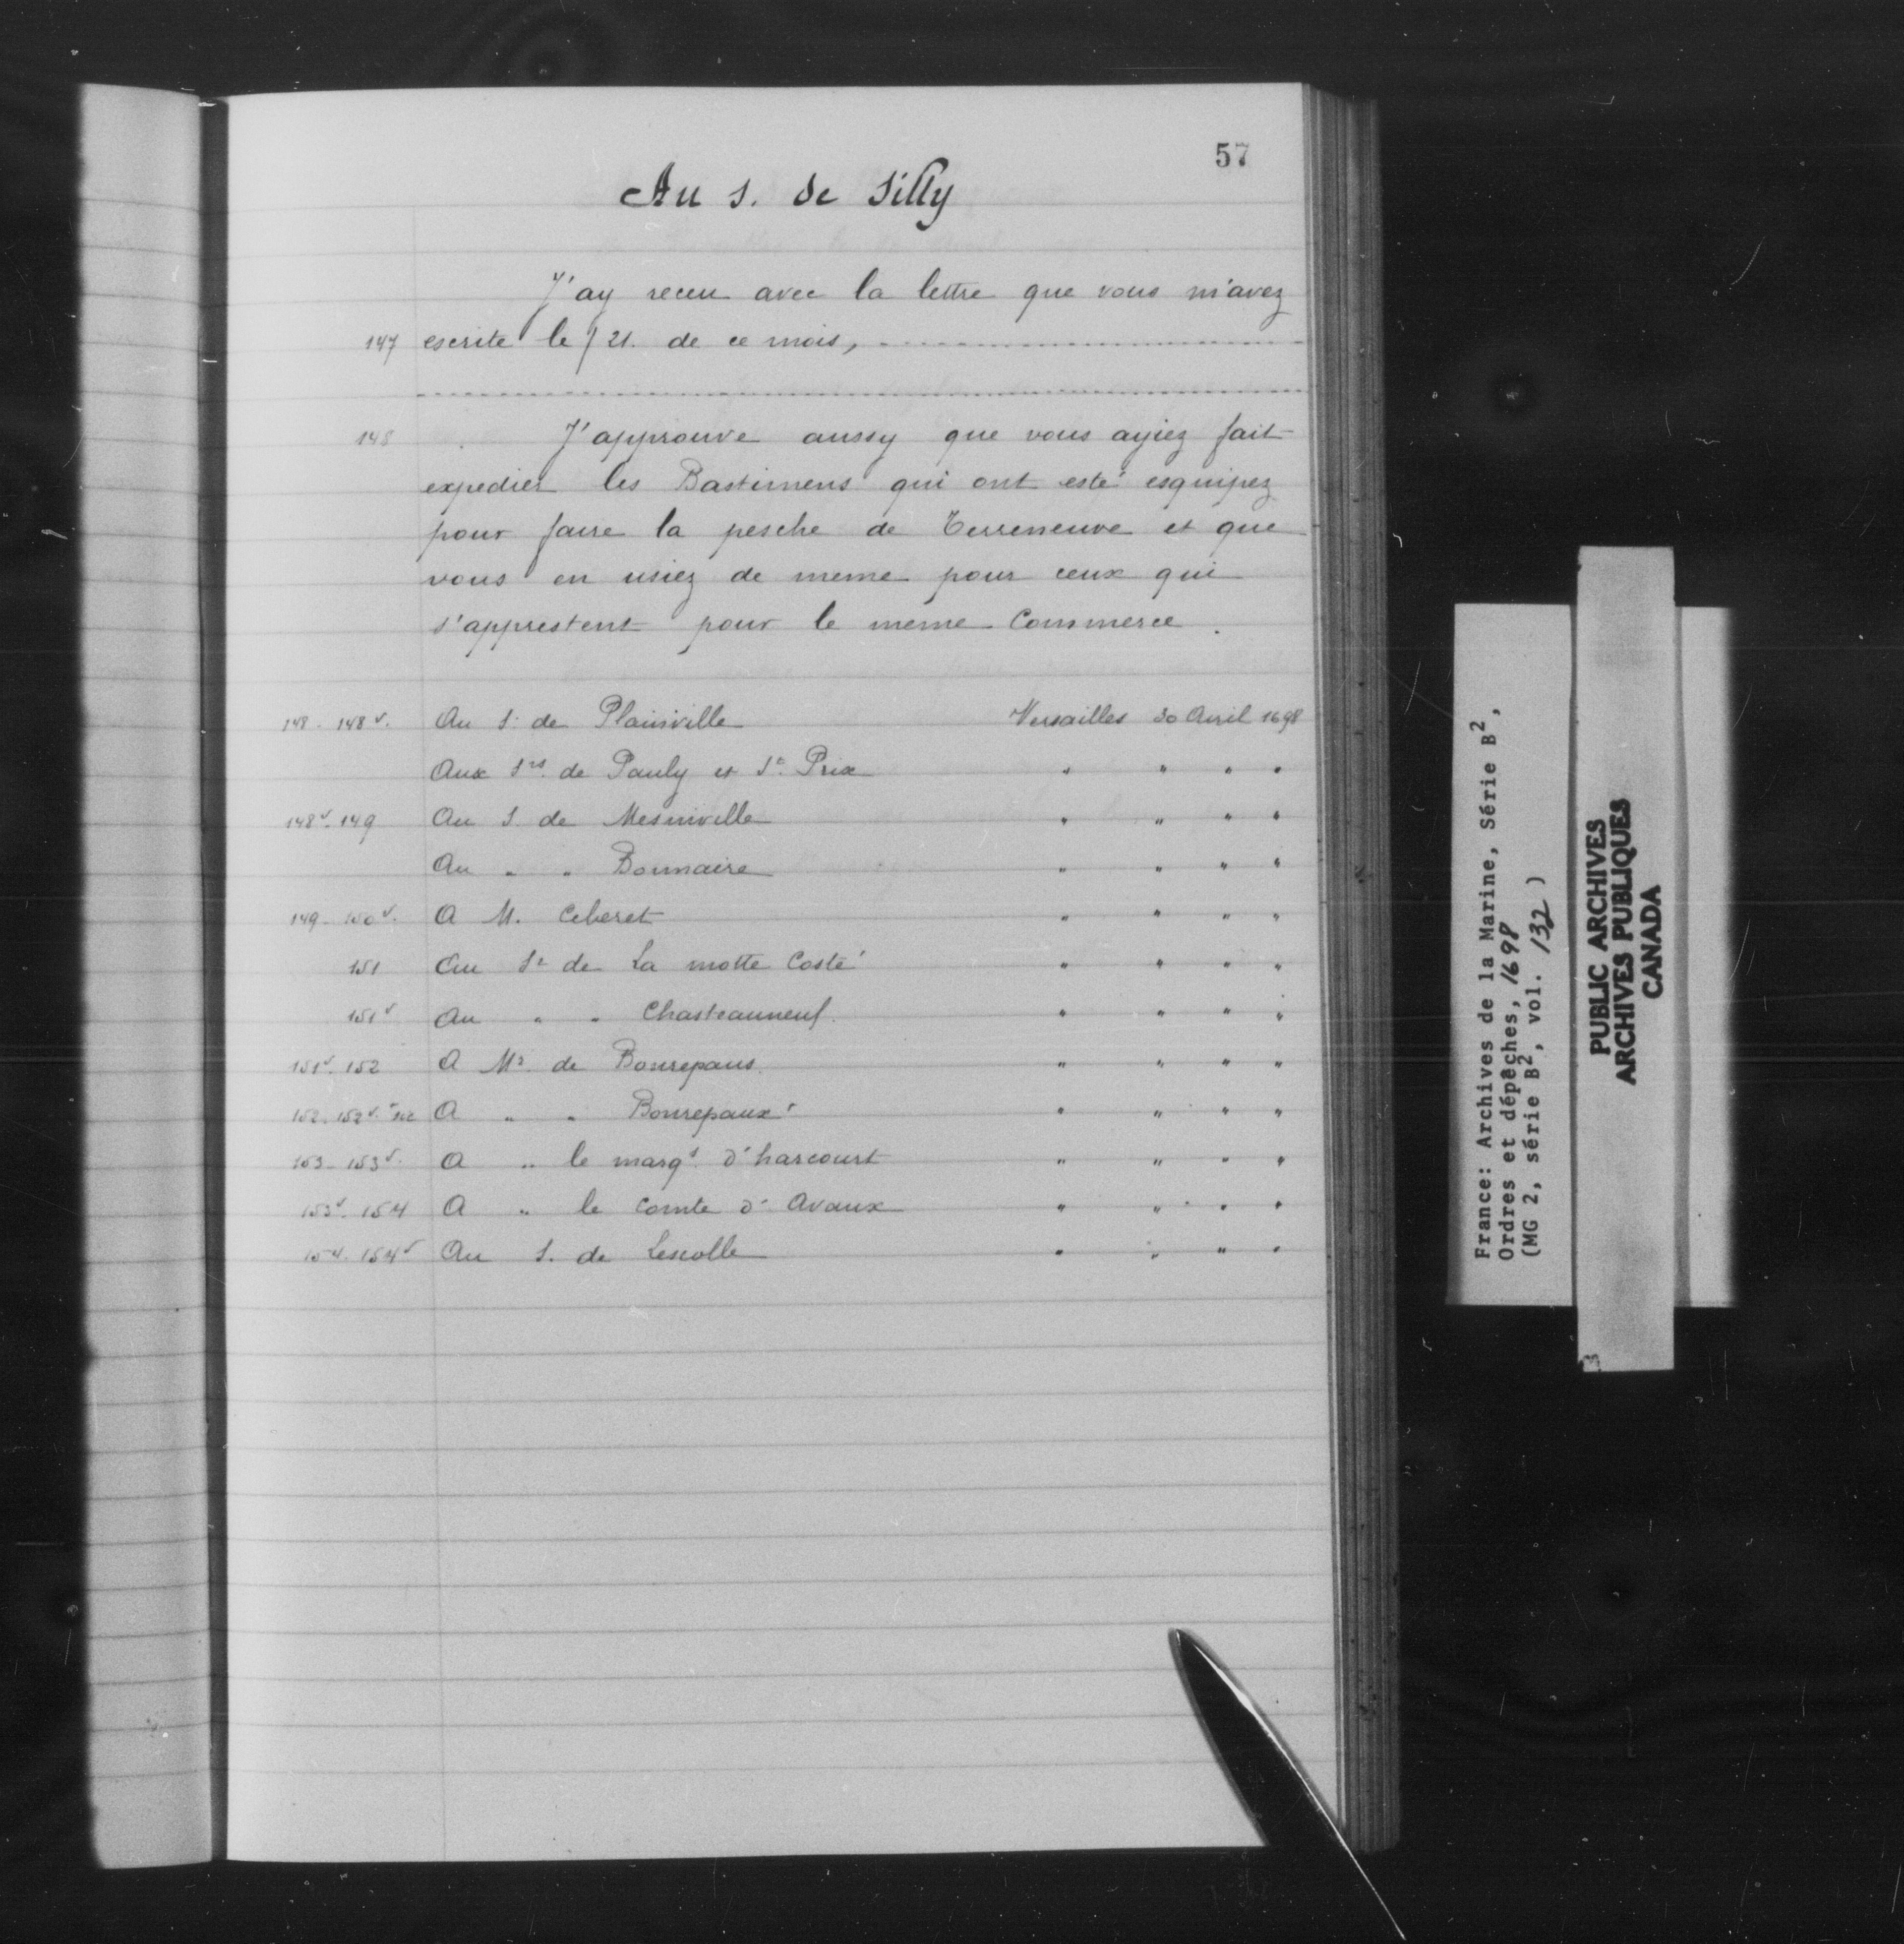 57
Au S. de Silly
J'ay receu avec la lettre que vous m'avez
147 escrite le / 21. de ce mois,
148 J'approuve aussy que vous ayiez fait
expedier les Bastimens qui ont esté esquipez
pour faire la pesche de Terreneuve et que
vous en usiez de meme pour ceux qui
s'apprestent pour le meme Commerce.
148 - 148 v. Au S. de Plainville Versailles 30 Avril 1698
Aux Srs. de Pauly et St. Prix " " " "
148 v. 149 Au S. de Mesniville " " " "
Au " " Bonnaire " " " "
149 - 150 v. A M. Ceberet " " " "
151 Au Sr de La motte Costé " " " "
151 v Au " " Chasteauneuf. " " " "
151 v. 152 A Mr. de Bonrepaus. " " " "
152. 152 v. A " " Bonrepaux " " " "
153 - 153 v. A " le marqs. d'harcourt " " " "
153 v. 154 A " le Comte d'Avaux " " " "
154. 154 v Au S. de Lescolle " " " "
France: Archives de la Marine, Série B2,
Ordres et dépêches, 1698
(MG 2, série B2, vol. 132)
PUBLIC ARCHIVES
ARCHIVES PUBLIQUES
CANADA